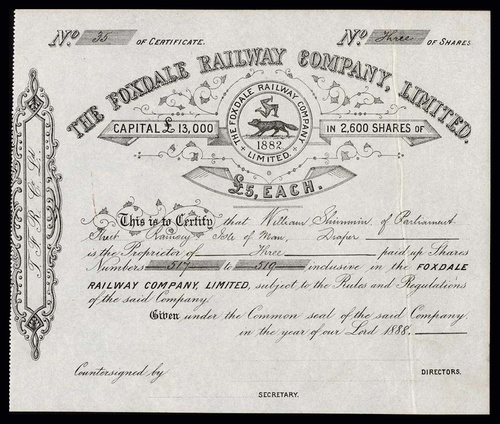 No. 35 OF CERTIFICATE. No. Three OF SHARES
THE FOXDALE RAILWAY COMPANY, LIMITED.
CAPITAL £13,000 IN 2,600 SHARES OF
THE FOXDALE RAILWAY COMPANY
1882
LIMITED.
£5, EACH.
This is to Certify that William Shimmin of Parliament
Street Ramsey Isle of Man, Draper
is the Proprietor of Three paid up Shares
Numbers 517 to 519 inclusive in the FOXDALE
RAILWAY COMPANY, LIMITED, subject to the Rules and Regulations
of the said Company.
Given under the Common seal of the said Company,
in the year of our Lord 1888.
DIRECTORS.
Countersigned by
SECRETARY.
T. F. R. Co. Ld.